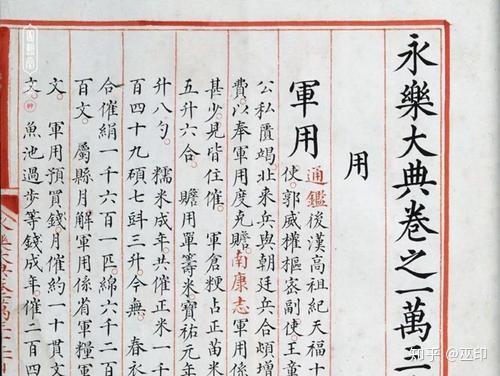 永樂大典卷之一萬二
用
軍用
通鑑後漢高祖紀天福十
使郭威權樞密副使王章
公私匱竭北来兵與朝廷兵合頓增
費以奉軍用度克贍南康志軍用
甚少見皆住催 軍倉粳占正苗米
五升六合 贍用單籌米寶祐元年
升八勺 糯米成年共催正米一千
百四十九碩七㪷三升今無 春衣
合催絹一千六百一匹綿六千二百
百文屬縣月解軍用係省軍糧軍
文 軍用預買錢月催約一十貫文
文 魚池過步等錢成年催二百四
知乎 @巫印